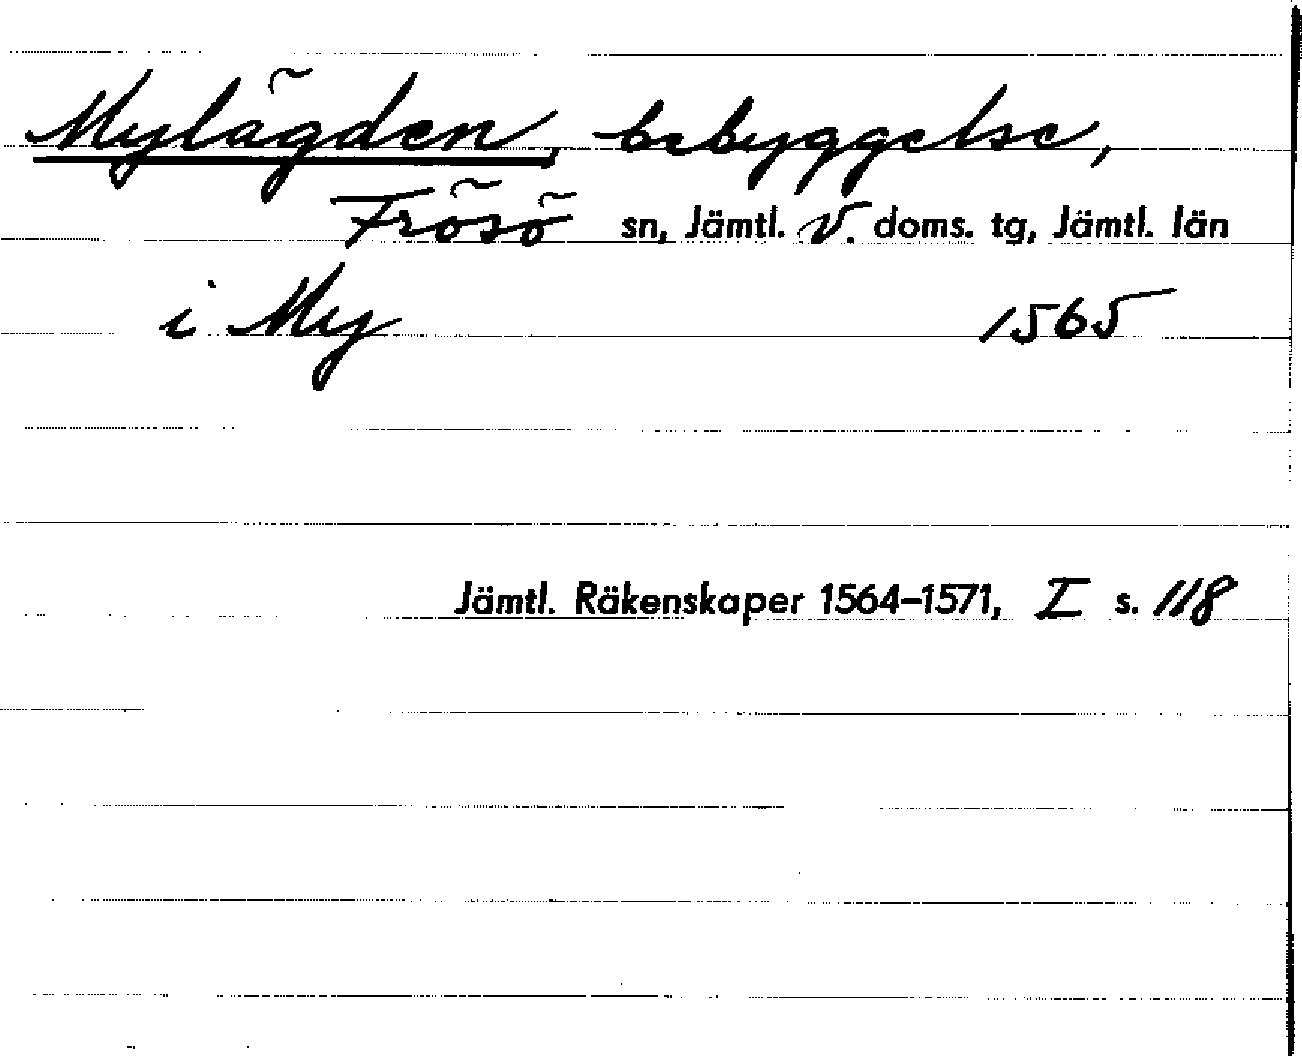 Mylägden, bebyggelse,
Frösö sn, Jämtl. V. doms. tg, Jämtl. län
i My 1565
Jämtl. Räkenskaper 1564–1571, I s. 118